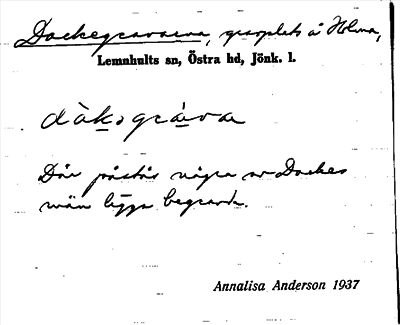 Dackegravarna, gravplats å Holma,
Lemnhults sn, Östra hd, Jönk. l.
dàkəgràva
Där påstås några av Dackes
män ligga begravda.
Annalisa Anderson 1937